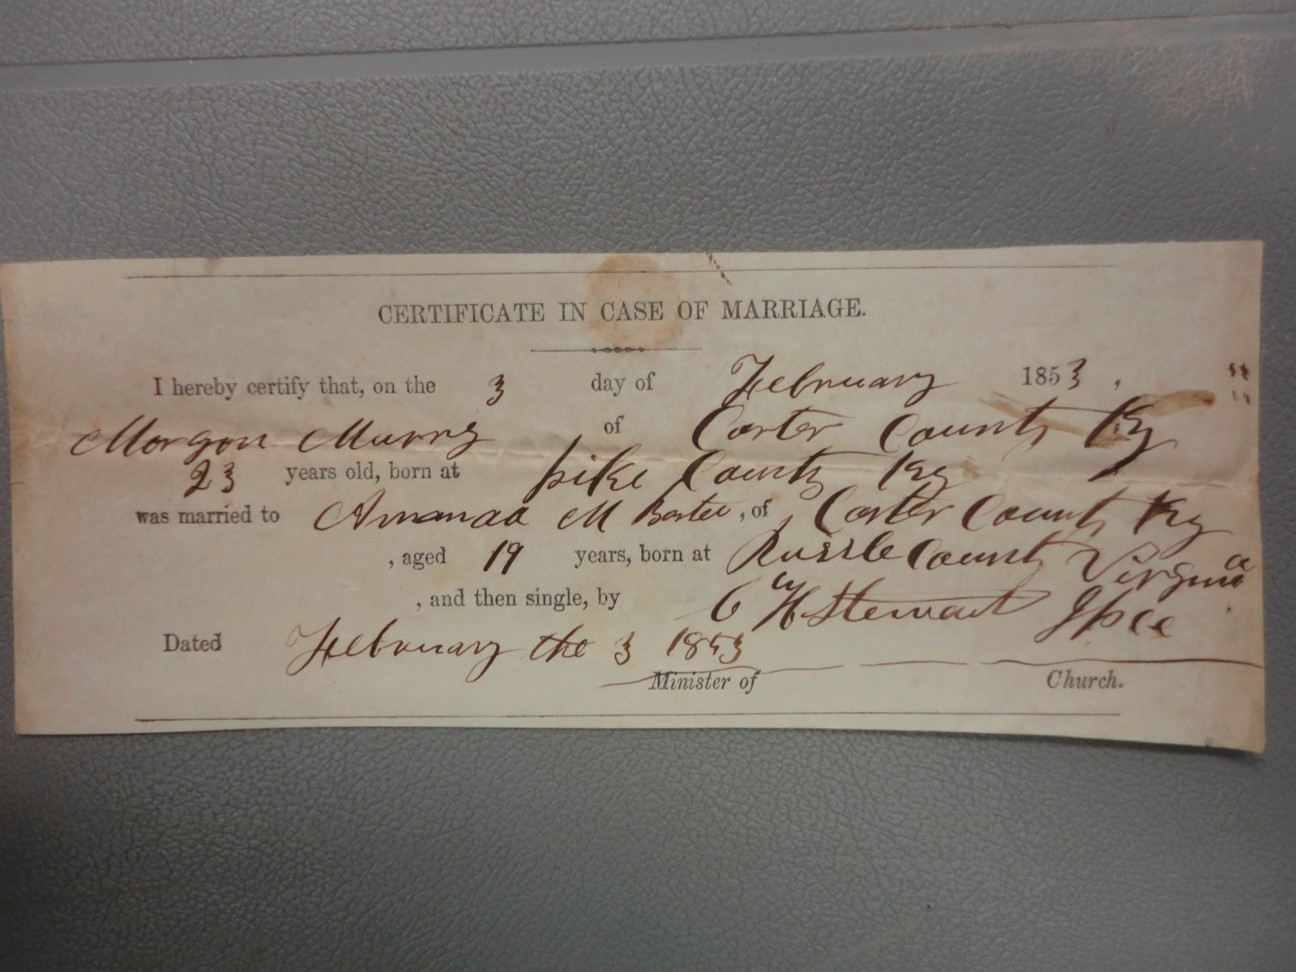 CERTIFICATE IN CASE OF MARRIAGE.
I hereby certify that, on the 3 day of February 1853,
Morgan Murry of Carter County Ky
23 years old, born at pike County Ky
was married to Amanda M Bartee, of Carter County Ky
, aged 19 years, born at Russle County Virginia
, and then single, by C H Stewart J P C C
Dated February the 3 1853
Minister of Church.